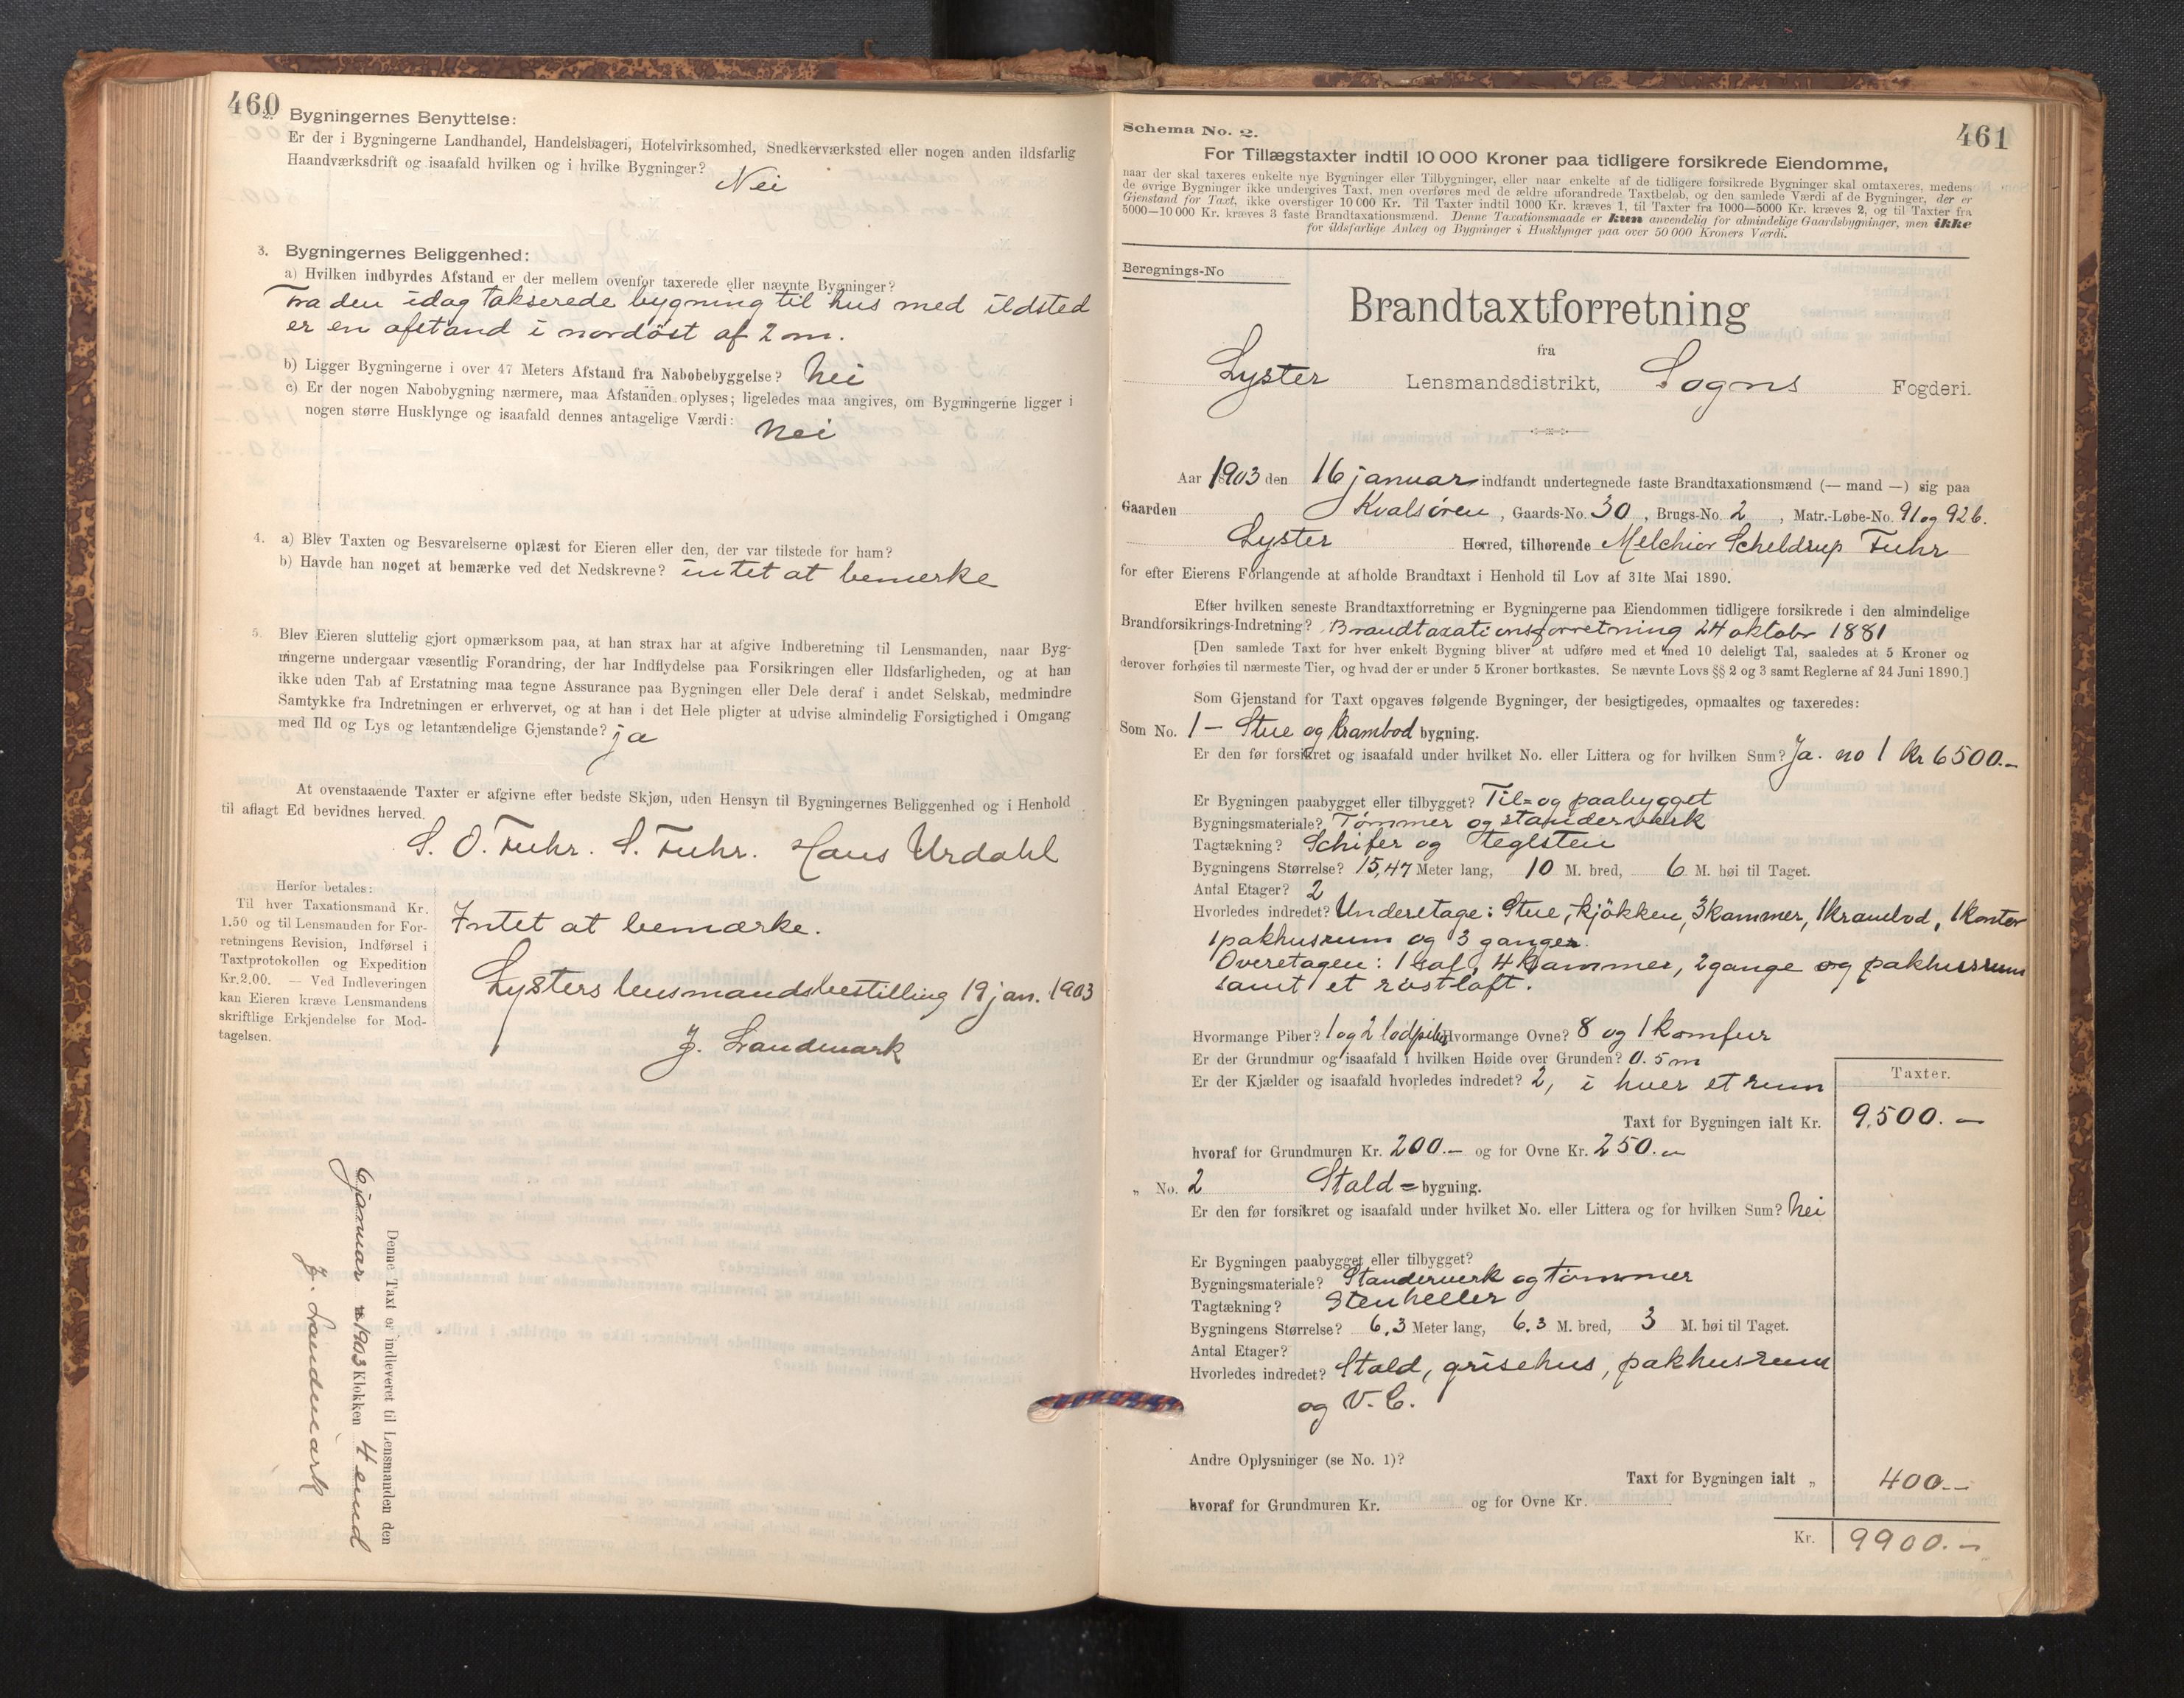 460
2. Bygningernes Benyttelse:
Er der i Bygningerne Landhandel, Handelsbageri, Hotelvirksomhed, Snedkerværksted eller nogen anden ildsfarlig
Haandværksdrift og isaafald hvilken og i hvilke Bygninger?
Nei
3. Bygningernes Beliggenhed:
a) Hvilken indbyrdes Afstand er der mellem ovenfor taxerede eller nævnte Bygninger?
Fra den idag takserede bygning til hus med ildsted
er en afstand i nordöst af 2 m.
b) Ligger Bygningerne i over 47 Meters Afstand fra Nabobebyggelse? Nei
c) Er der nogen Nabobygning nærmere, maa Afstanden oplyses; ligeledes maa angives, om Bygningerne ligger i
nogen større Husklynge og isaafald dennes antagelige Værdi: Nei
4. a) Blev Taxten og Besvarelserne oplæst for Eieren eller den, der var tilstede for ham?
b) Havde han noget at bemærke ved det Nedskrevne? intet at bemerke
5. Blev Eieren sluttelig gjort opmærksom paa, at han strax har at afgive Indberetning til Lensmanden, naar Byg-
ningerne undergaar væsentlig Forandring, der har Indflydelse paa Forsikringen eller Ildsfarligheden, og at han
ikke uden Tab af Erstatning maa tegne Assurance paa Bygningen eller Dele deraf i andet Selskab, medmindre
Samtykke fra Indretningen er erhvervet, og at han i det Hele pligter at udvise almindelig Forsigtighed i Omgang
med Ild og Lys og letantændelige Gjenstande? ja
At ovenstaaende Taxter er afgivne efter bedste Skjøn, uden Hensyn til Bygningernes Beliggenhed og i Henhold
til aflagt Ed bevidnes herved.
S. O. Fuhr. S. Fuhr. Hans Urdahl
Herfor betales:
Til hver Taxationsmand Kr.
1.50 og til Lensmanden for For-
retningens Revision, Indførsel i
Taxtprotokollen og Expedition
Kr. 2.00. — Ved Indleveringen
kan Eieren kræve Lensmandens
skriftlige Erkjendelse for Mod-
tagelsen.
Intet at bemærke.
Lysters lensmandsbestilling 19 jan. 1903
J. Landmark
Denne Taxt er indleveret til Lensmanden den
januar 1903 Klokken 4 emd
J. Landmark
461
Schema No. 2.
For Tillægstaxter indtil 10 000 Kroner paa tidligere forsikrede Eiendomme,
naar der skal taxeres enkelte nye Bygninger eller Tilbygninger, eller naar enkelte af de tidligere forsikrede Bygninger skal omtaxeres, medens
de øvrige Bygninger ikke undergives Taxt, men overføres med de ældre uforandrede Taxtbeløb, og den samlede Værdi af de Bygninger, der er
Gjenstand for Taxt, ikke overstiger 10 000 Kr. Til Taxter indtil 1000 Kr. kræves 1, til Taxter fra 1000—5000 Kr. kræves 2, og til Taxter fra
5000—10 000 Kr. kræves 3 faste Brandtaxationsmænd. Denne Taxationsmaade er kun anvendelig for almindelige Gaardsbygninger, men ikke
for ildsfarlige Anlæg og Bygninger i Husklynger paa over 50 000 Kroners Værdi.
Beregnings-No
Brandtaxtforretning
fra
Lyster Lensmandsdistrikt, Sogns Fogderi.
Aar 1903 den 16 januar indfandt undertegnede faste Brandtaxationsmænd (— mand —) sig paa
Gaarden Kvalsören, Gaards-No. 30, Brugs-No. 2, Matr.-Løbe-No. 91 og 92 b.
Lyster Herred, tilhørende Melchior Scheldrup Fuhr
for efter Eierens Forlangende at afholde Brandtaxt i Henhold til Lov af 31te Mai 1890.
Efter hvilken seneste Brandtaxtforretning er Bygningerne paa Eiendommen tidligere forsikrede i den almindelige
Brandforsikrings-Indretning? Brandtaxationsforretning 24 oktobr 1881
[Den samlede Taxt for hver enkelt Bygning bliver at udføre med et med 10 deleligt Tal, saaledes at 5 Kroner og
derover forhøies til nærmeste Tier, og hvad der er under 5 Kroner bortkastes. Se nævnte Lovs §§ 2 og 3 samt Reglerne af 24 Juni 1890.]
Som Gjenstand for Taxt opgaves følgende Bygninger, der besigtigedes, opmaaltes og taxeredes:
Som No. 1 - Stue og krambod bygning.
Er den før forsikret og isaafald under hvilket No. eller Littera og for hvilken Sum? Ja. no 1 kr 6500.-
Er Bygningen paabygget eller tilbygget? Til= og paabygget
Bygningsmateriale? Tömmer og standerverk
Tagtækning? Schifer og teglsten
Bygningens Størrelse? 15,47 Meter lang, 10 M. bred, 6 M. høi til Taget.
Antal Etager? 2
Hvorledes indredet? Underetage: Stue, kjökken, 3 kammer, 1 krambod, 1 kontor
1 pakhusrum og 3 ganger.
Overetagen: 1 sal, 4 kammer, 2 gange og pakhusrum
samt et röstloft.
Hvormange Piber? 1 og 2 lodpiber Hvormange Ovne? 8 og 1 komfur
Er der Grundmur og isaafald i hvilken Høide over Grunden? 0.5 m
Er der Kjælder og isaafald hvorledes indredet? 2, i hver et rum
Taxter.
Taxt for Bygningen ialt Kr. 9.500.-
hvoraf for Grundmuren Kr. 200.- og for Ovne Kr. 250.-
„ No. 2 Stald = bygning.
Er den før forsikret og isaafald under hvilket No. eller Littera og for hvilken Sum? Nei
Er Bygningen paabygget eller tilbygget?
Bygningsmateriale? Standerverk og tömmer
Tagtækning? Stenheller
Bygningens Størrelse? 6.3 Meter lang, 6.3 M. bred, 3 M. høi til Taget.
Antal Etager?
Hvorledes indredet? Stald, grisehus, pakhusrum
og V. C.
Andre Oplysninger (se No. 1)?
Taxt for Bygningen ialt „ 400.-
hvoraf for Grundmuren Kr. og for Ovne Kr.
Kr. 9900.-